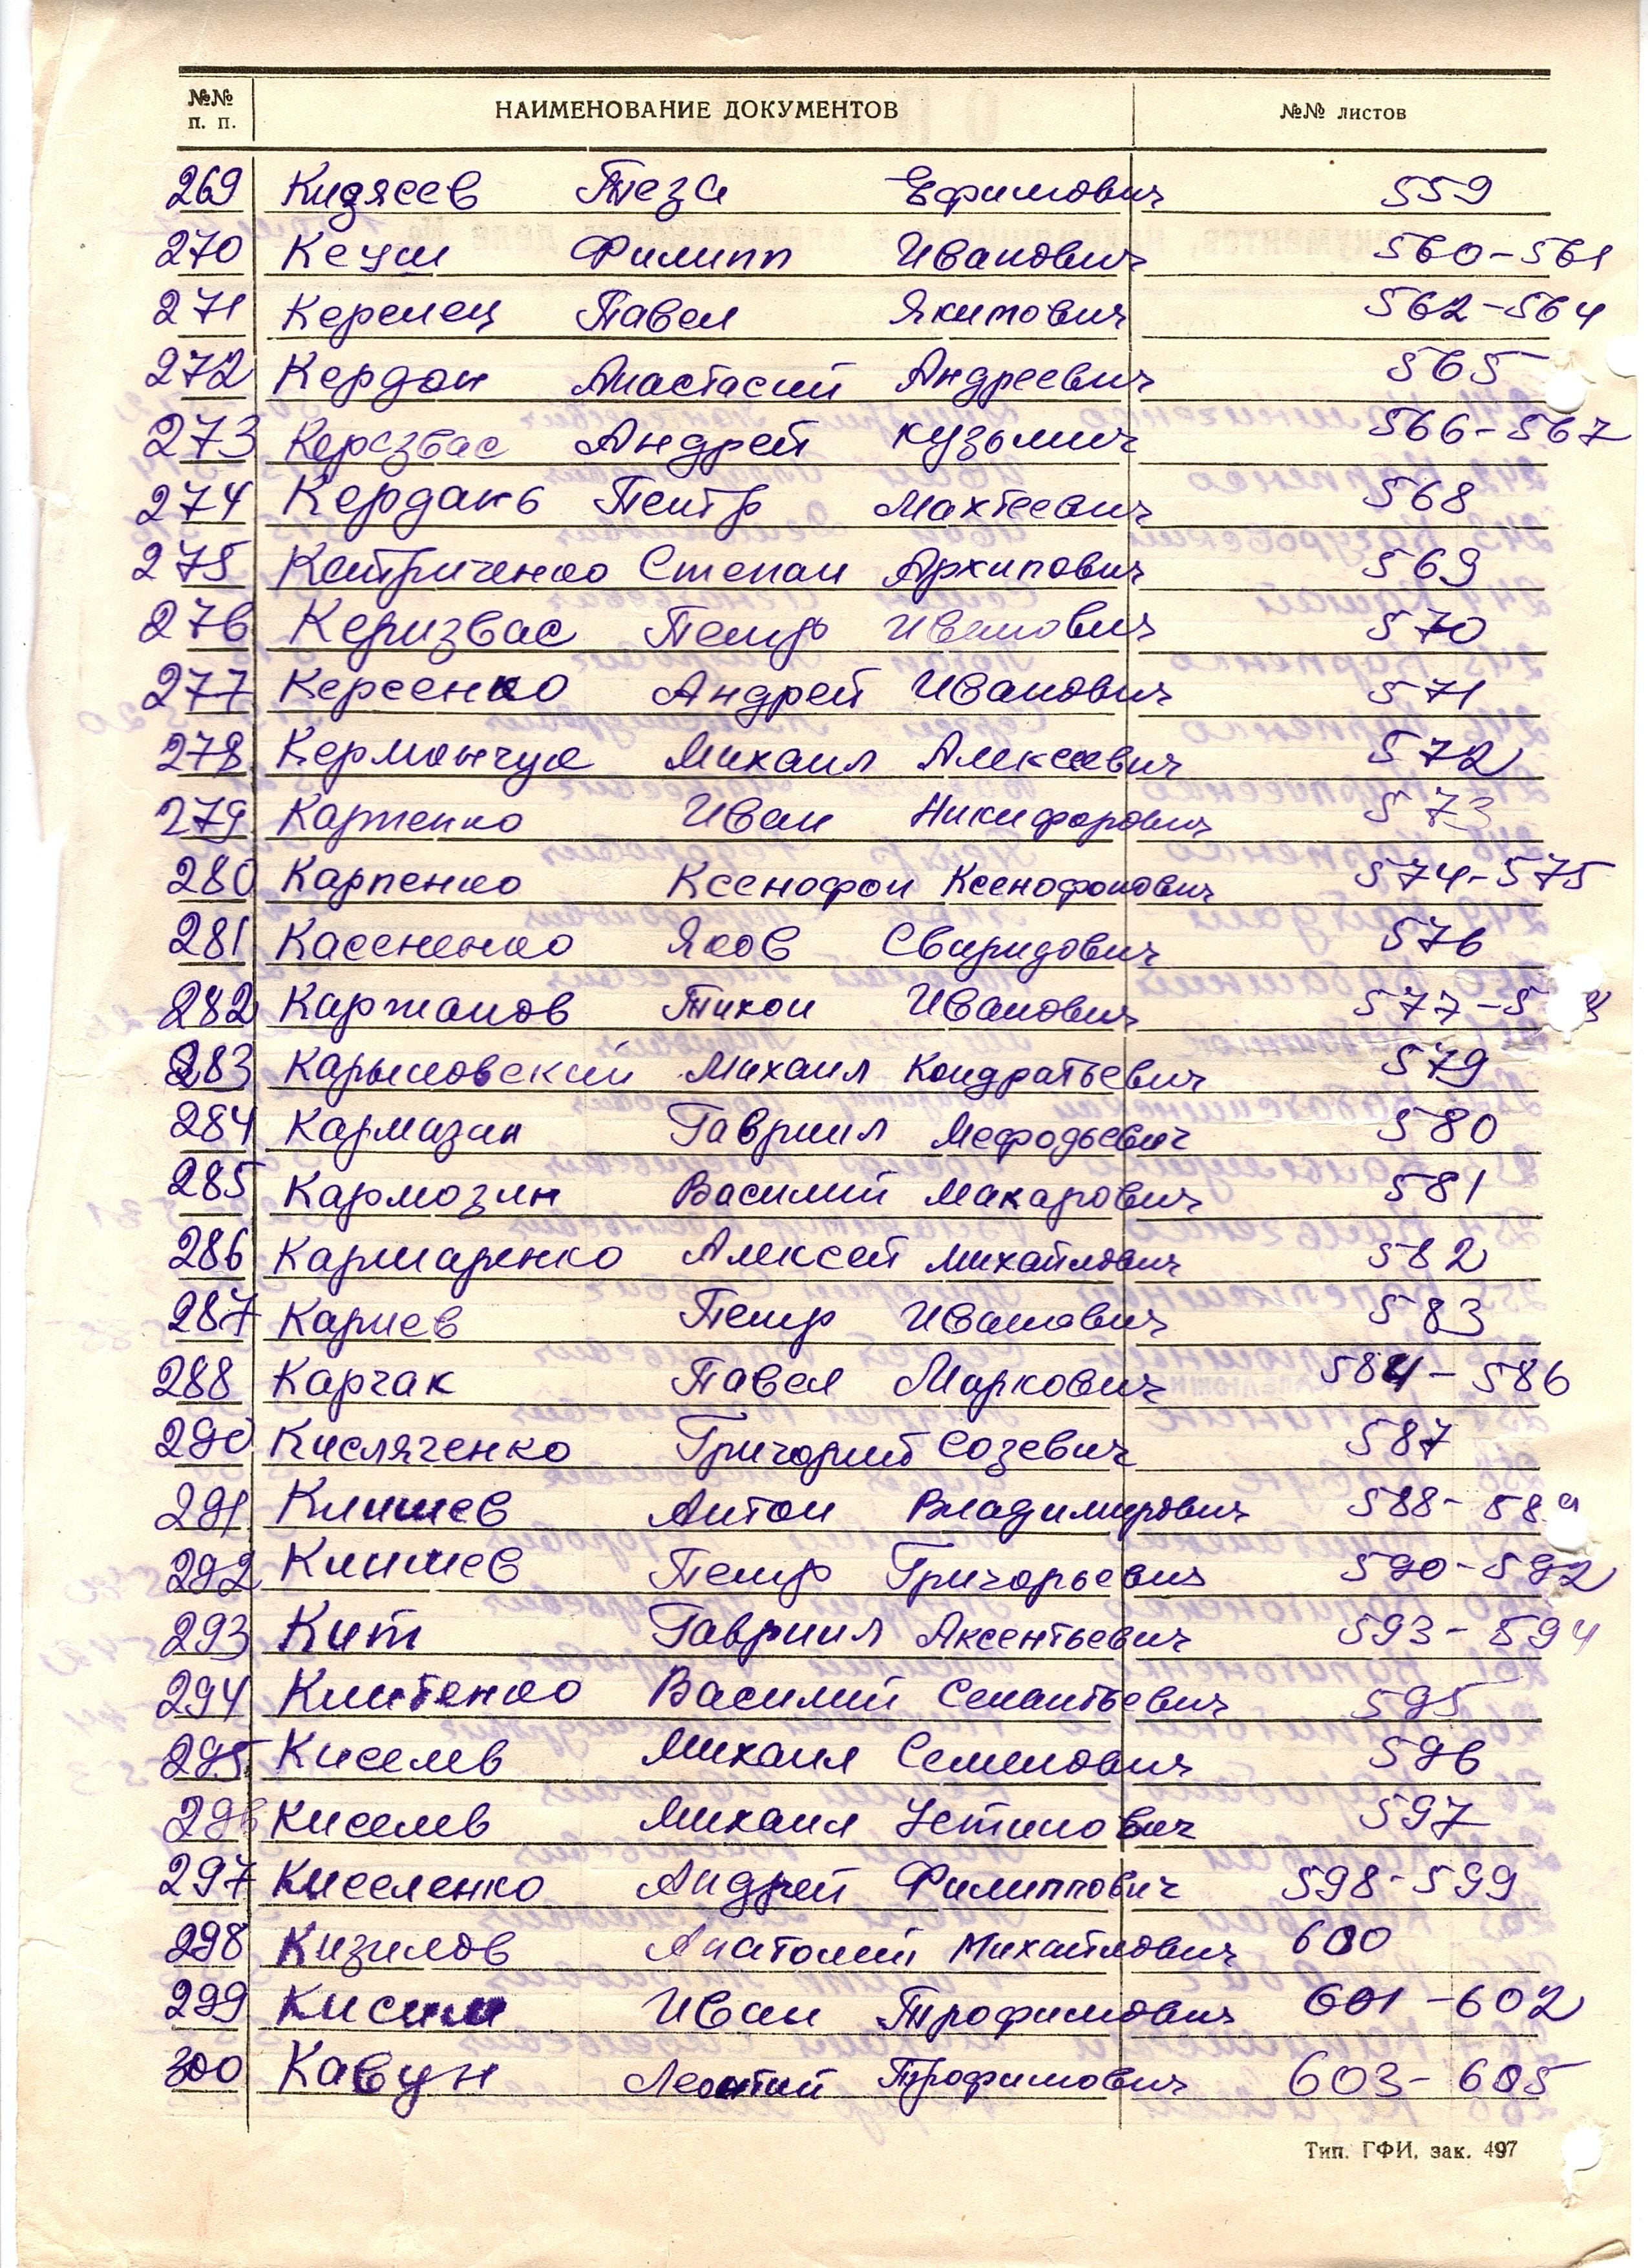 №№ п. п. НАИМЕНОВАНИЕ ДОКУМЕНТОВ №№ листов
269 Кидясев Теза Ефимович 559
270 Кеуш Филипп Иванович 560-561
271 Керелец Павел Якимович 562-564
272 Кердон Анастасий Андреевич 565
273 Андрей Кузьмич 566-567
274 Кердань Петр Махтеевич 568
275 Катриченко Степан Архипович 569
276 Керизвас Петр Иванович 570
277 Керсенко Андрей Иванович 571
278 Михаил Алексеевич 572
279 Карпенко Иван Никифорович 573
280 Карпенко Ксенофон Ксенофонович 574-575
281 Касененко Яков Свиридович 576
282 Каржанов Тихон Иванович 577-5
283 Карымовский Михаил Кондратьевич 579
284 Кармазин Гавриил Мефодьевич 580
285 Кармозин Василий Макарович 581
286 Кармаренко Алексей Михайлович 582
287 Кариев Петр Иванович 583
288 Карчак Павел Маркович 584-586
290 Кисляченко Григорий Созевич 587
291 Антон Владимирович 588-58
292 Петр Григорьевич 590-592
293 Кит Гавриил Аксентьевич 593-594
294 Василий 595
295 Киселев Михаил Семенович 596
296 Киселев Михаил Устинович 597
297 Киселенко Андрей Филиппович 598-599
298 Кизилов Анатолий Михайлович 600
299 Иван Трофимович 601-602
300 Кавун Леонтий Трофимович 603-605
Тип. ГФИ, зак. 497